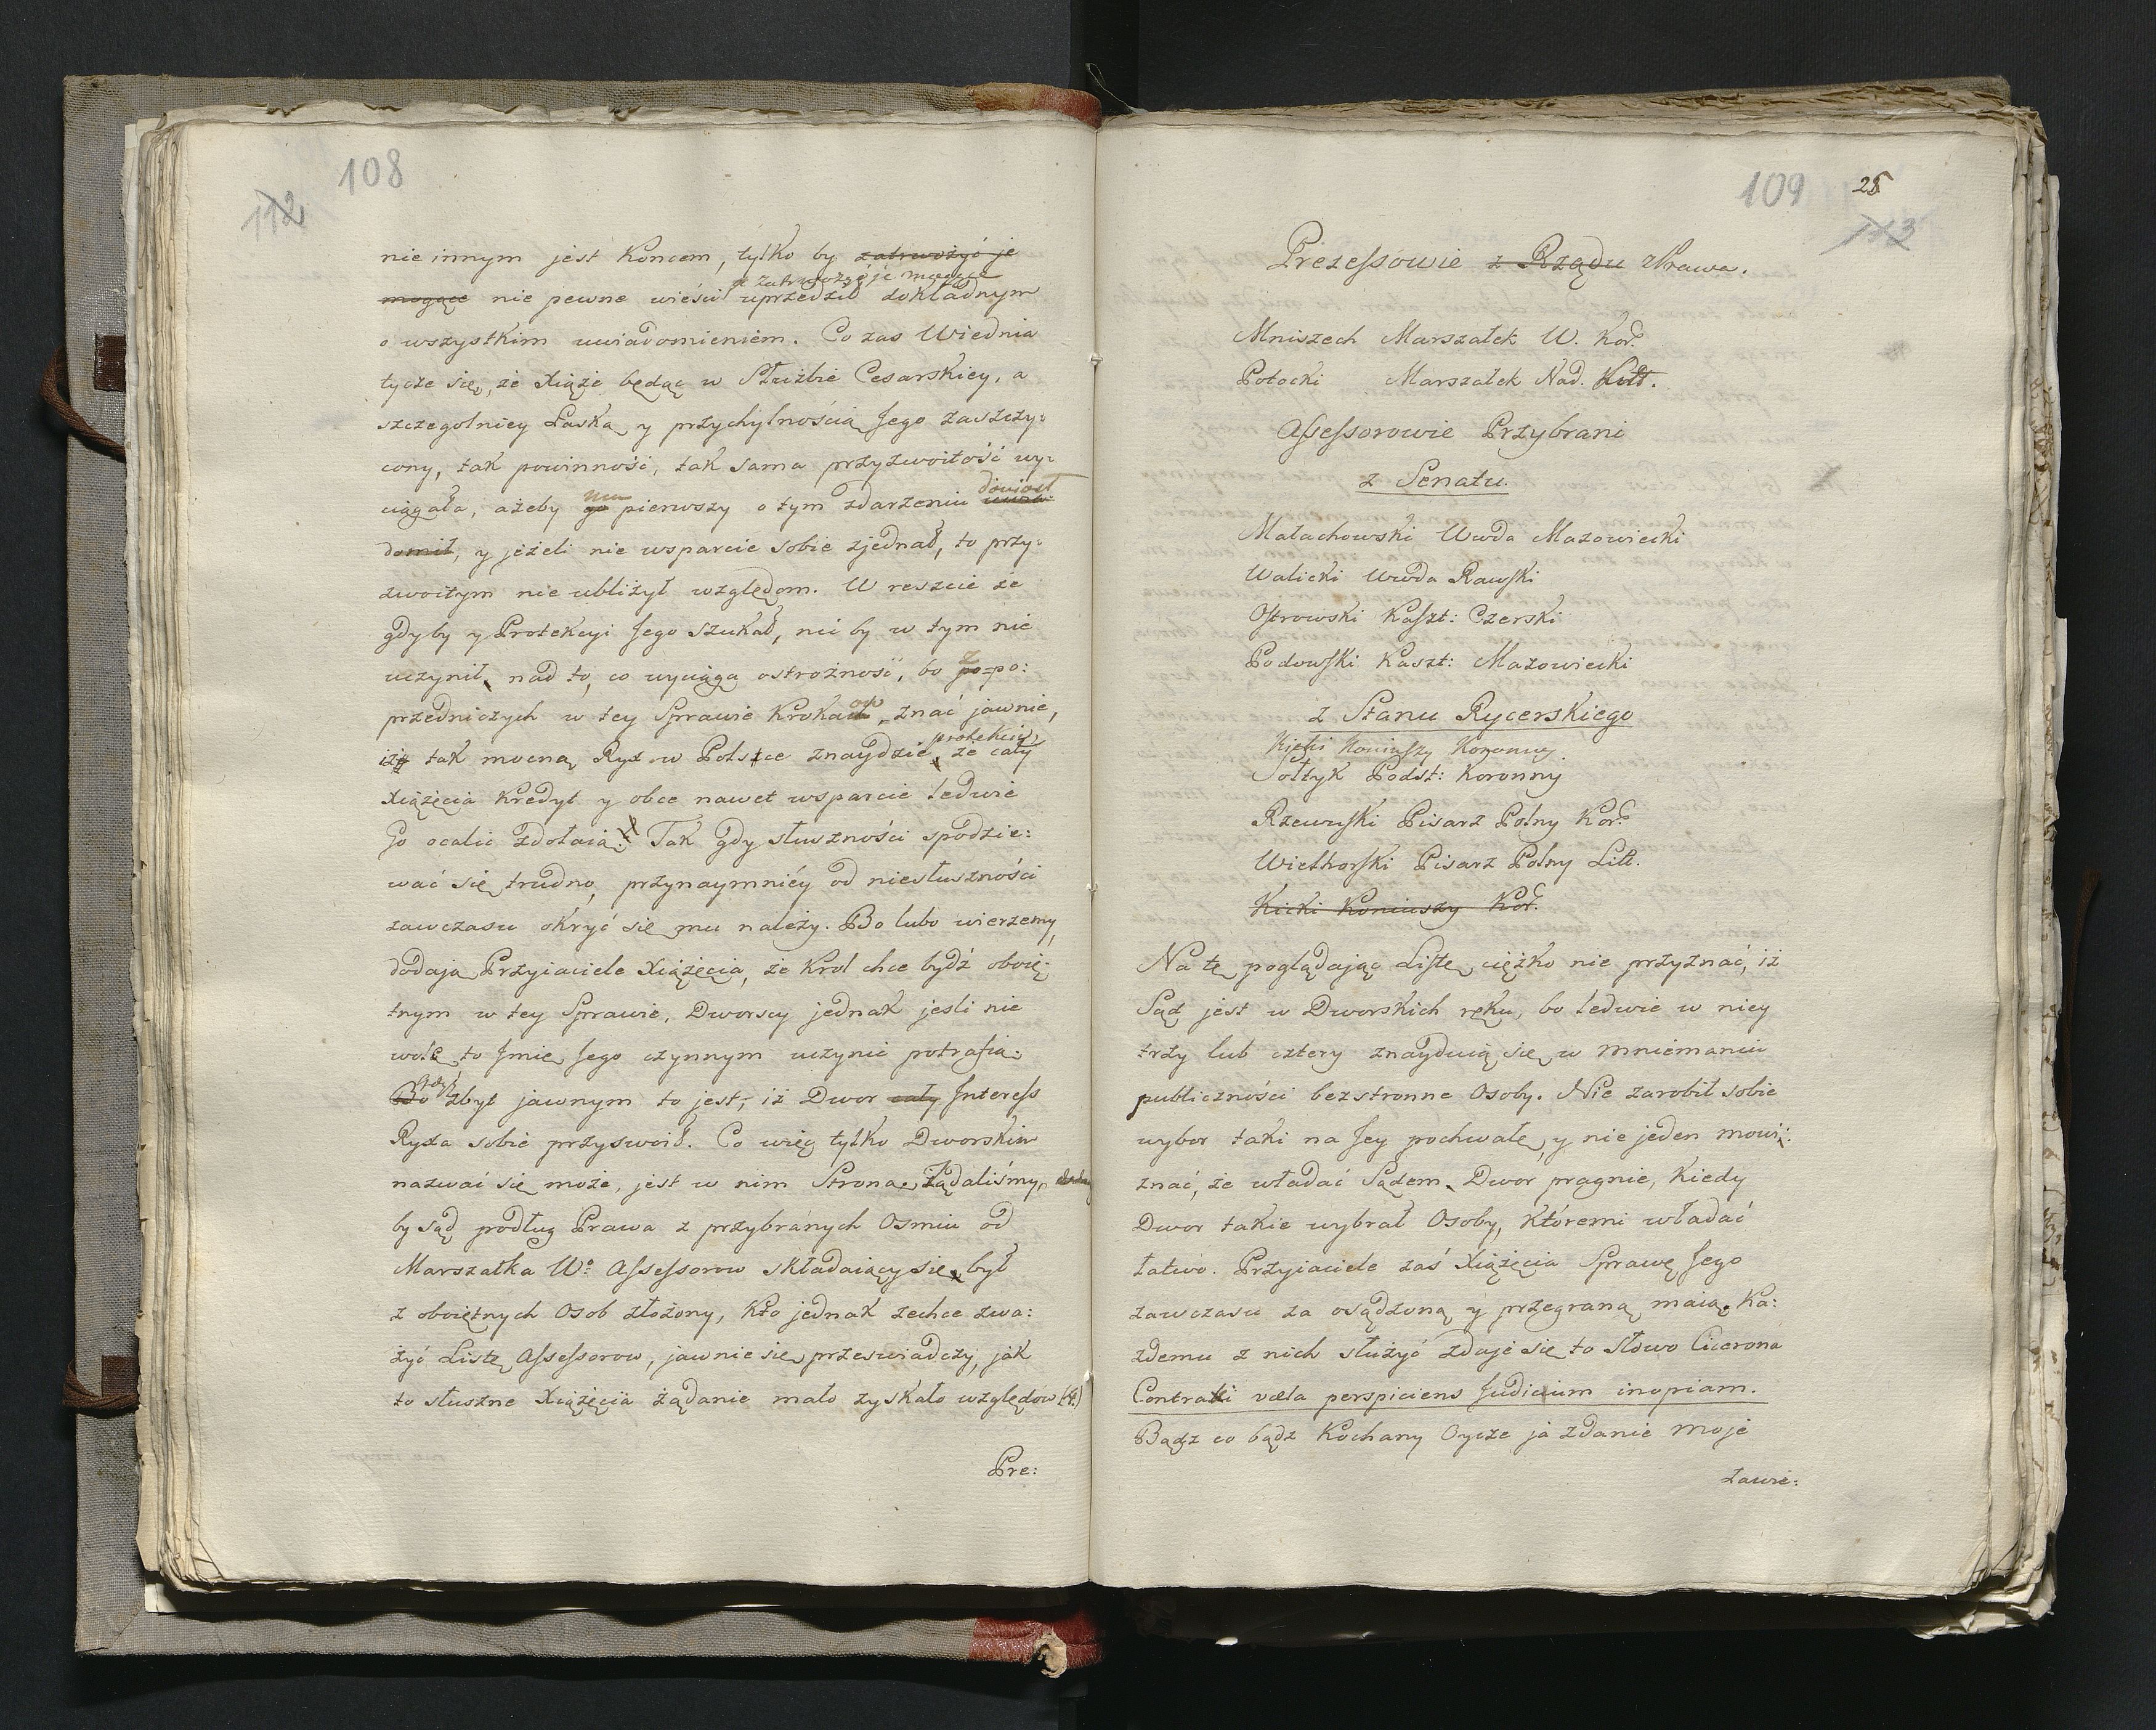 108
112
nie innym jest Koncem, tylko by zatrwożyć je
a zatrwożyć je mogące
mogące nie pewne wieści uprzedził dokładnym
o wszystkim uwiadomieniem. Co zas Wiednia
tycze się, że Xiąże będąc w Służbie Cesarskiey, a
szczegolniey Łaską y przychylnością Jego zaszczy:
cony, tak powinność, tak sama przyzwoitość wy:
mu doniosł
ciągała, ażeby go pierwszy o tym zdarzeniu uwia:
domił, y jeżeli nie wsparcie sobie zjednał, to przy:
zwoitym nie ubliżył względom. W reszcie że
gdyby y Protekcyi Jego szukał, nic by w tym nie
uczynił, nad to, co wyciąga ostrożność, bo z po=po:
przedniczych w tey Sprawie Krokach ow, znać jawnie,
protekcyą
iż tak mocną Ryx w Polsce znaydzie, że cały
Xiążęcia Kredyt y obce nawet wsparcie ledwie
Go ocalić zdołaią. Tak gdy słuszności spodzie:
wać się trudno, przynaymniéy od niesłuszności
zawczasu okryć się mu należy. Bo lubo wierzemy,
dodają Przyiaciele Xiążęcia, że Krol chce bydź oboię:
tnym w tey Sprawie, Dworscy jednak jesli nie
wolę to Jmie Jego czynnym uczynić potrafią.
gdyż
Bo zbyt jawnym to jest, iż Dwor cały Interess
Ryxa sobie przyswoił. Co więc tylko Dworskim
nazwać się może, jest w nim Stroną. Żądaliśmy,
by sąd podług Prawa z przybranych Osmiu od
Marszałka Wo: Assessorow składaiący się był
z oboiętnych Osob złożony, Kto jednak zechce zwa:
żyć Listę Assessorow, jawnie się przeswiadczy, jak
to słuszne Xiążęcia żądanie mało zyskało względow (4.)
Pre:
109
25
113
Prezessowie z Rządu Prawa.
Mniszech Marszałek W. Kor:
Potocki Marszałek Nad. Litt.
Assessorowie Przybrani
z Senatu.
Małachowski Wwda Mazowiecki
Walicki Wwda Rawski
Ostrowski Kaszt: Czerski
Podowski Kaszt: Mazowiecki
z Stanu Rycerskiego
Kicki Koniuszy Koronny.
Sołtyk Podst: Koronny
Rzewuski Pisarz Polny Kor:
Wielhorski Pisarz Polny Litt.
Kicki Koniuszy Kor:
Na tę poglądając Listę, ciężko nie przyznać, iż
Sąd jest w Dworskich ręku, bo ledwie w niey
trzy lub cztery znayduią się w mniemaniu
publiczności bezstronne Osoby. Nie zarobił sobie
wybor taki na Jey pochwałę, y nie jeden mowi:
znać, że władać Sądem, Dwor pragnie, Kiedy
Dwor takie wybrał Osoby, któremi władać
łatwo. Przyiaciele zaś Xiążęcia Sprawę Jego
zawczasu za osądzoną y przegraną maią. Ka:
żdemu z nich służyć zdaje się to słowo Cicerona
Contraxi vela perspiciens Judicium inopiam.
Bądz co bądz Kochany Oycze ja zdanie moje
zawie: